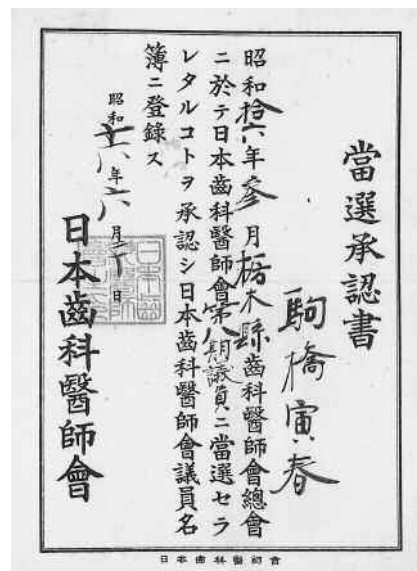 當選承認書
駒橋寅春
昭和拾六年參月栃木縣齒科醫師會總會
ニ於テ日本齒科醫師會第八期議員ニ當選セラ
レタルコトヲ承認シ日本齒科醫師會議員名
簿ニ登錄ス
昭和十六年六月二十日
日本齒科醫師會
日本齒科醫師會